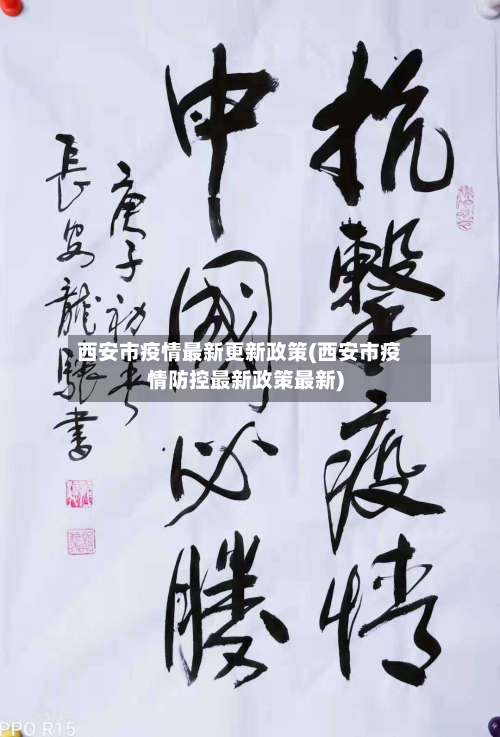 抗擊疫情
中國必勝
庚子初春
長安龍驤書
西安市疫情最新更新政策(西安市疫
情防控最新政策最新)
PPO R15